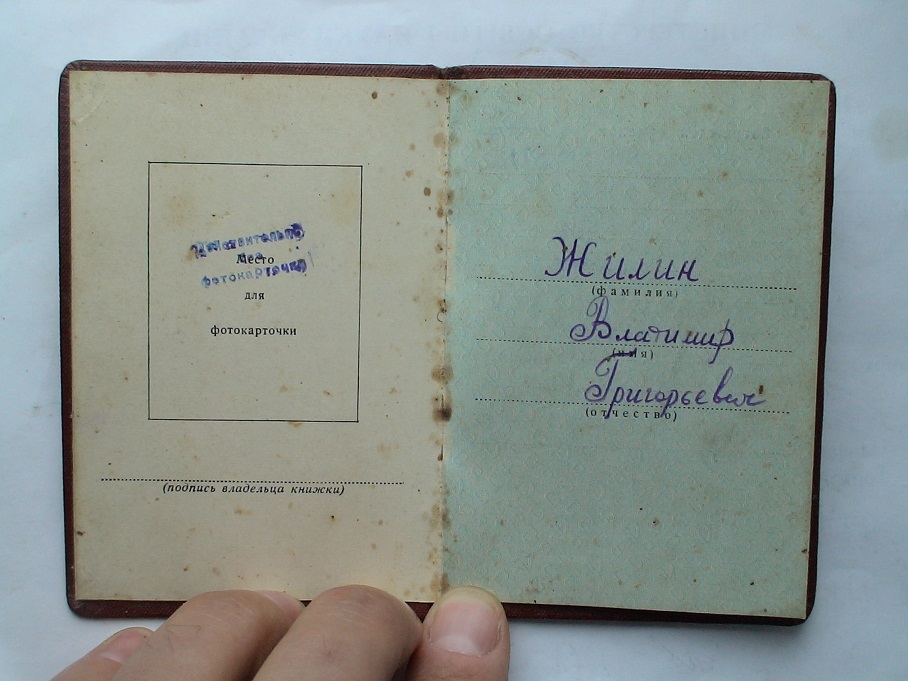 Действительно
без
фотокарточки
Место
для
фотокарточки
(подпись владельца книжки)
Жилин
(фамилия)
Владимир
(имя)
Григорьевич
(отчество)